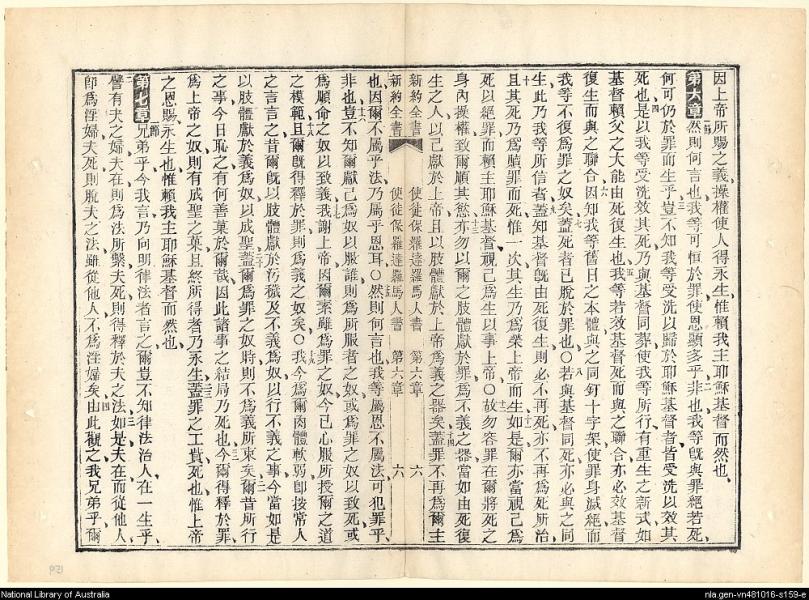 因上帝所賜之義操權使人得永生惟賴我主耶穌基督而然也
第六章 一節 然則何言也我等可恒於罪使恩顯多乎二非也我等既與罪絕若死
何可仍於罪而生乎三豈不知我等受洗以歸於耶穌基督者皆受洗以效其
死也四是以我等受洗效其死乃與基督同葬使我等所行有重生之新式如
基督賴父之大能由死復生也五我等若效基督死而與之聯合亦必效基督
復生而與之聯合六因知我等舊日之本體與之同釘十字架使罪身滅絕而
我等不復爲罪之奴矣七蓋死者已脫於罪也〇八若與基督同死亦必與之同
生此乃我等所信者九蓋知基督既由死復生則必不再死亦不再爲死所治
十且其死乃爲贖罪而死惟一次其生乃爲榮上帝而生十一如是爾亦當視己爲
死以絕罪而賴主耶穌基督視己爲生以事上帝〇十二故勿容罪在爾將死之
身內操權致爾順其慾十三亦勿以爾之肢體獻於罪爲不義之器當如由死復
生之人以己獻於上帝且以肢體獻於上帝爲義之器矣十四蓋罪不再爲爾主
新約全書 使徒保羅達羅馬人書 第六章 六
新約全書 使徒保羅達羅馬人書 第六章 六
也因爾不屬乎法乃屬乎恩耳〇十五然則何言也我等屬恩不屬法可犯罪乎
非也十六豈不知爾獻己爲奴以服誰則爲所服者之奴或爲罪之奴以致死或
爲順命之奴以致義十七我謝上帝因爾素雖爲罪之奴今已心服所授爾之道
之模範十八且爾既得釋於罪則爲義之奴矣〇十九我今爲爾肉體軟弱即按常人
之言言之昔爾既以肢體獻於污穢及不義爲奴以行不義之事今當如是
以肢體獻於義爲奴以成聖二十蓋爾爲罪之奴時則不爲義所束矣二一爾昔所行
之事今日恥之有何善菓於爾哉因此諸事之結局乃死也二二今爾得釋於罪
爲上帝之奴則有成聖之菓且終所得者乃永生二三蓋罪之工貰死也惟上帝
之恩賜永生也惟賴我主耶穌基督而然也
第七章 一節 兄弟乎今我言乃向明律法者言之爾豈不知律法治人在一生乎
二譬有夫之婦夫在則爲法所繫夫死則得釋於夫之法三如是夫在而從他人
即爲淫婦夫死則脫夫之法雖從他人不爲淫婦矣四由此觀之我兄弟乎爾
National Library of Australia
nla.gen-vn481016-s159-e